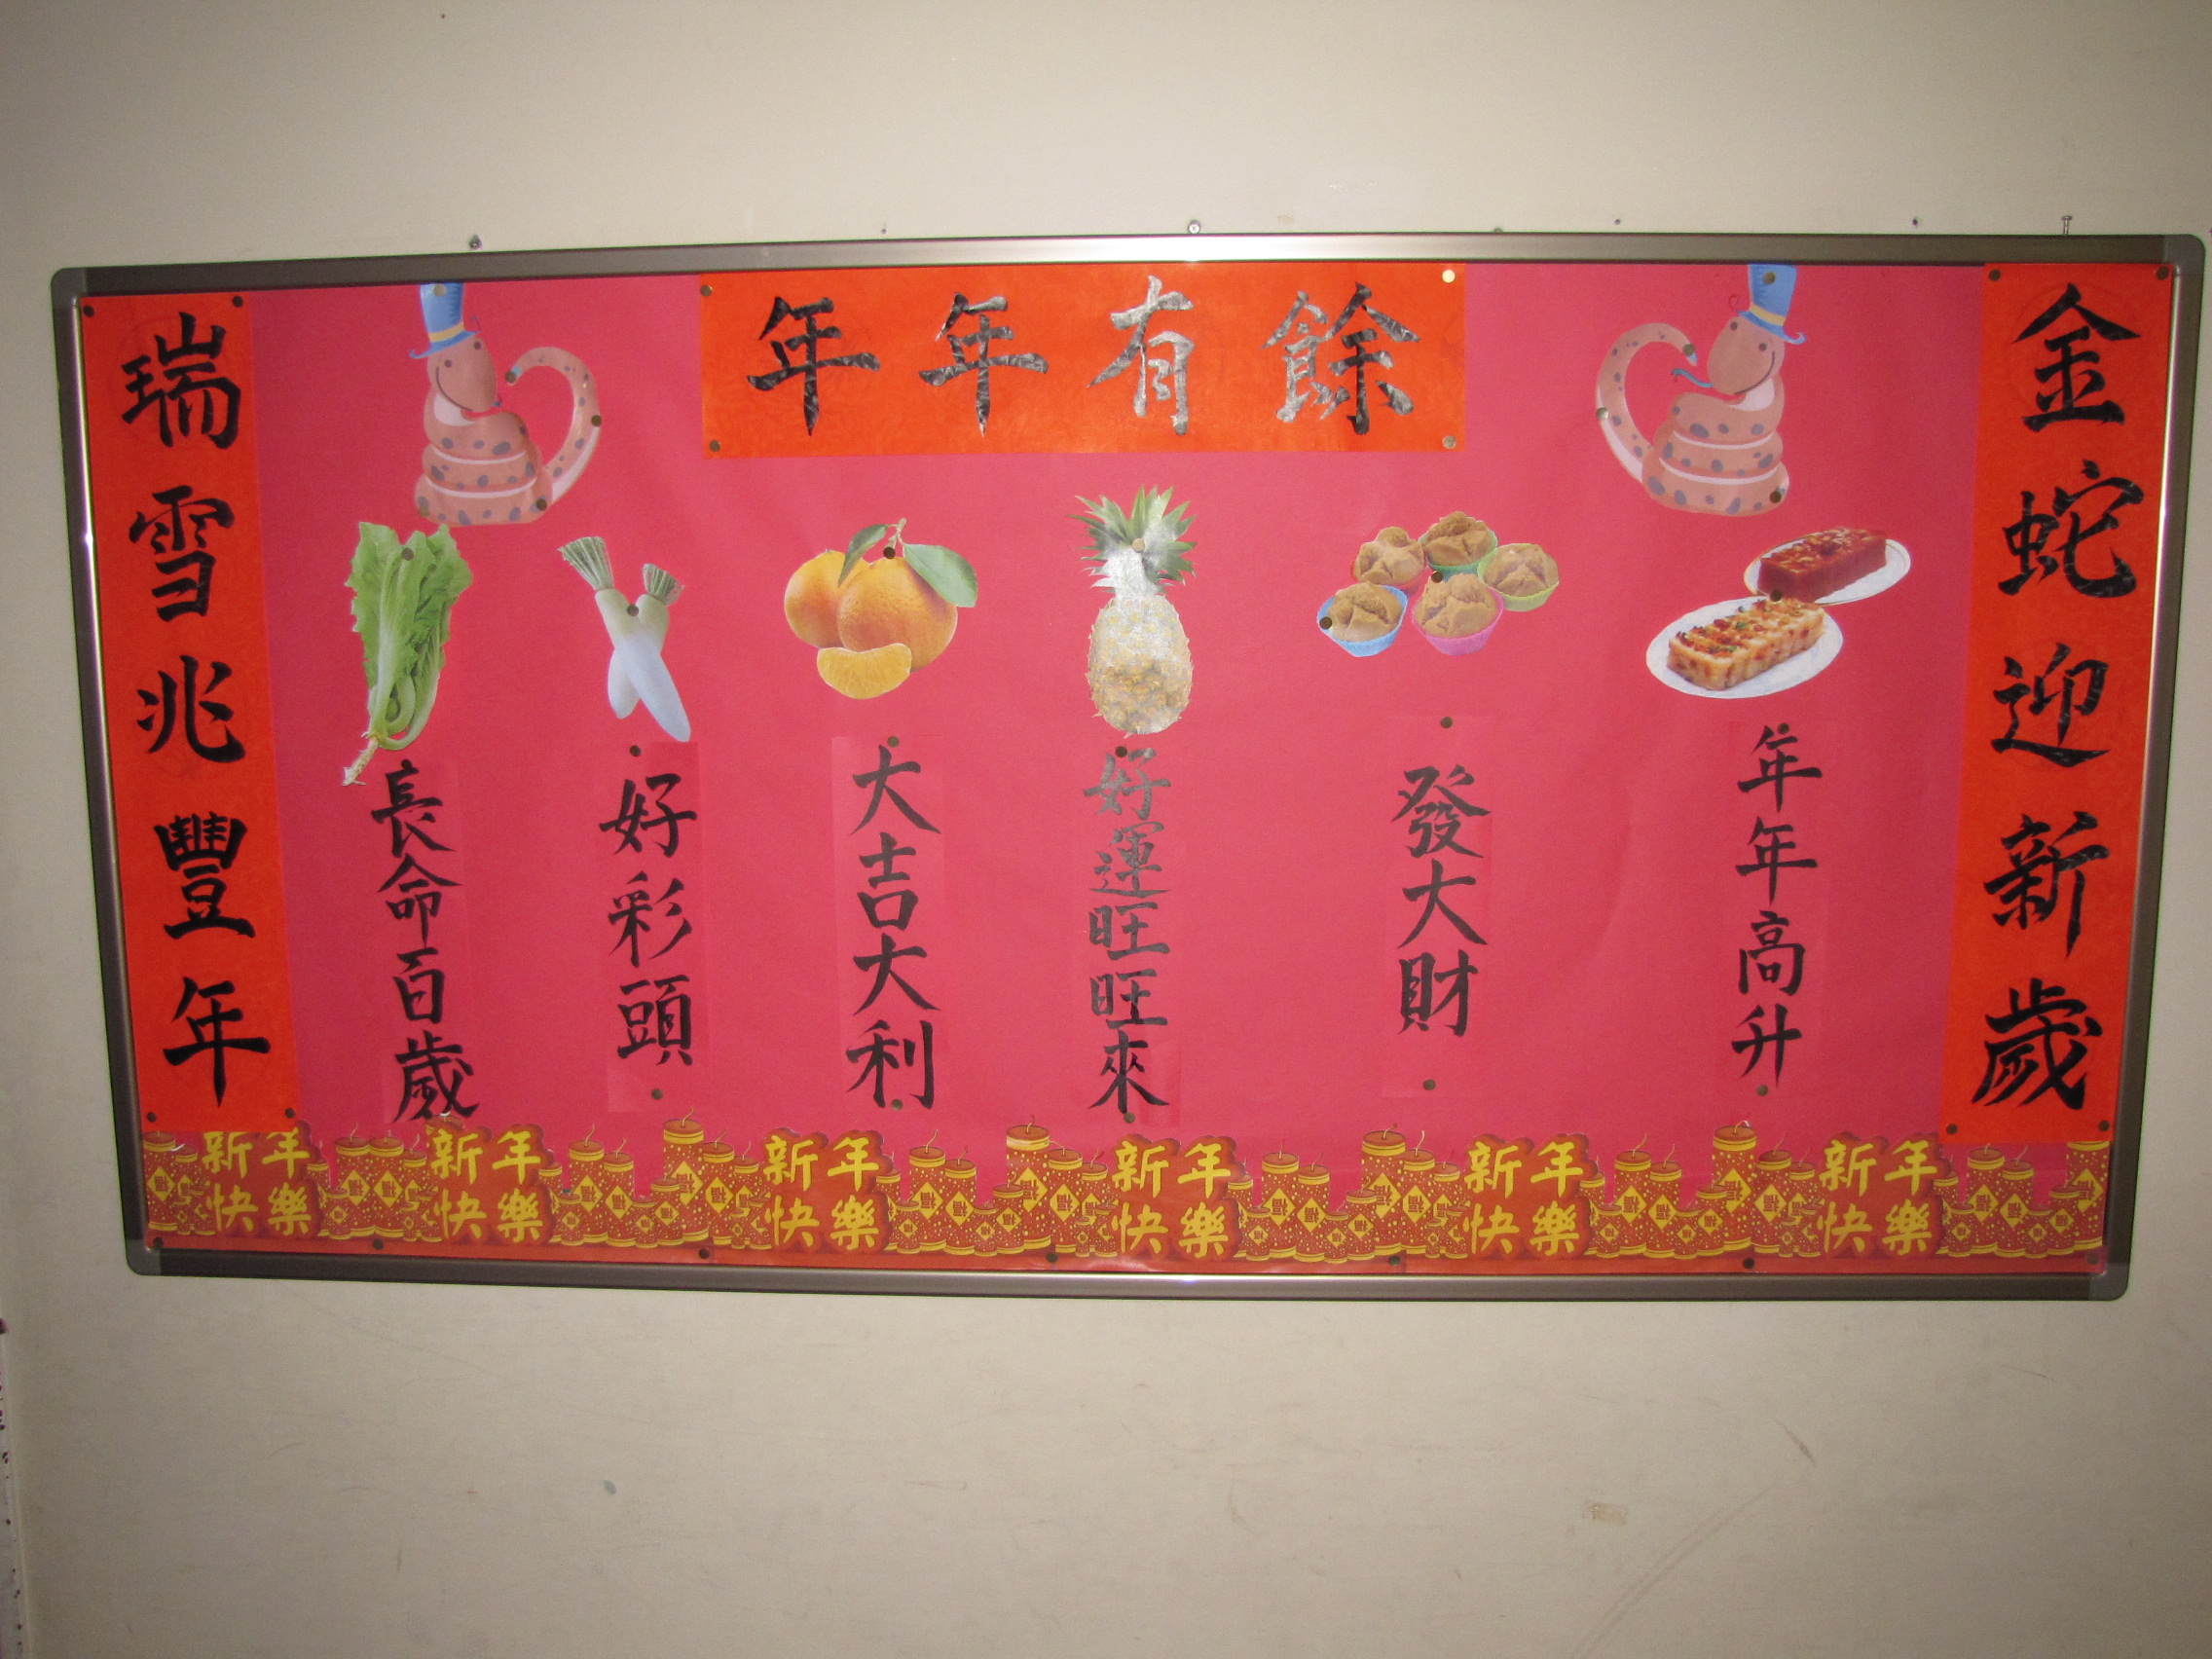 年年有餘
金蛇迎新歲
瑞雪兆豐年
長命百歲
好彩頭
大吉大利
好運旺旺來
發大財
年年高升
新年
快樂
新年
快樂
新年
快樂
新年
快樂
新年
快樂
新年
快樂